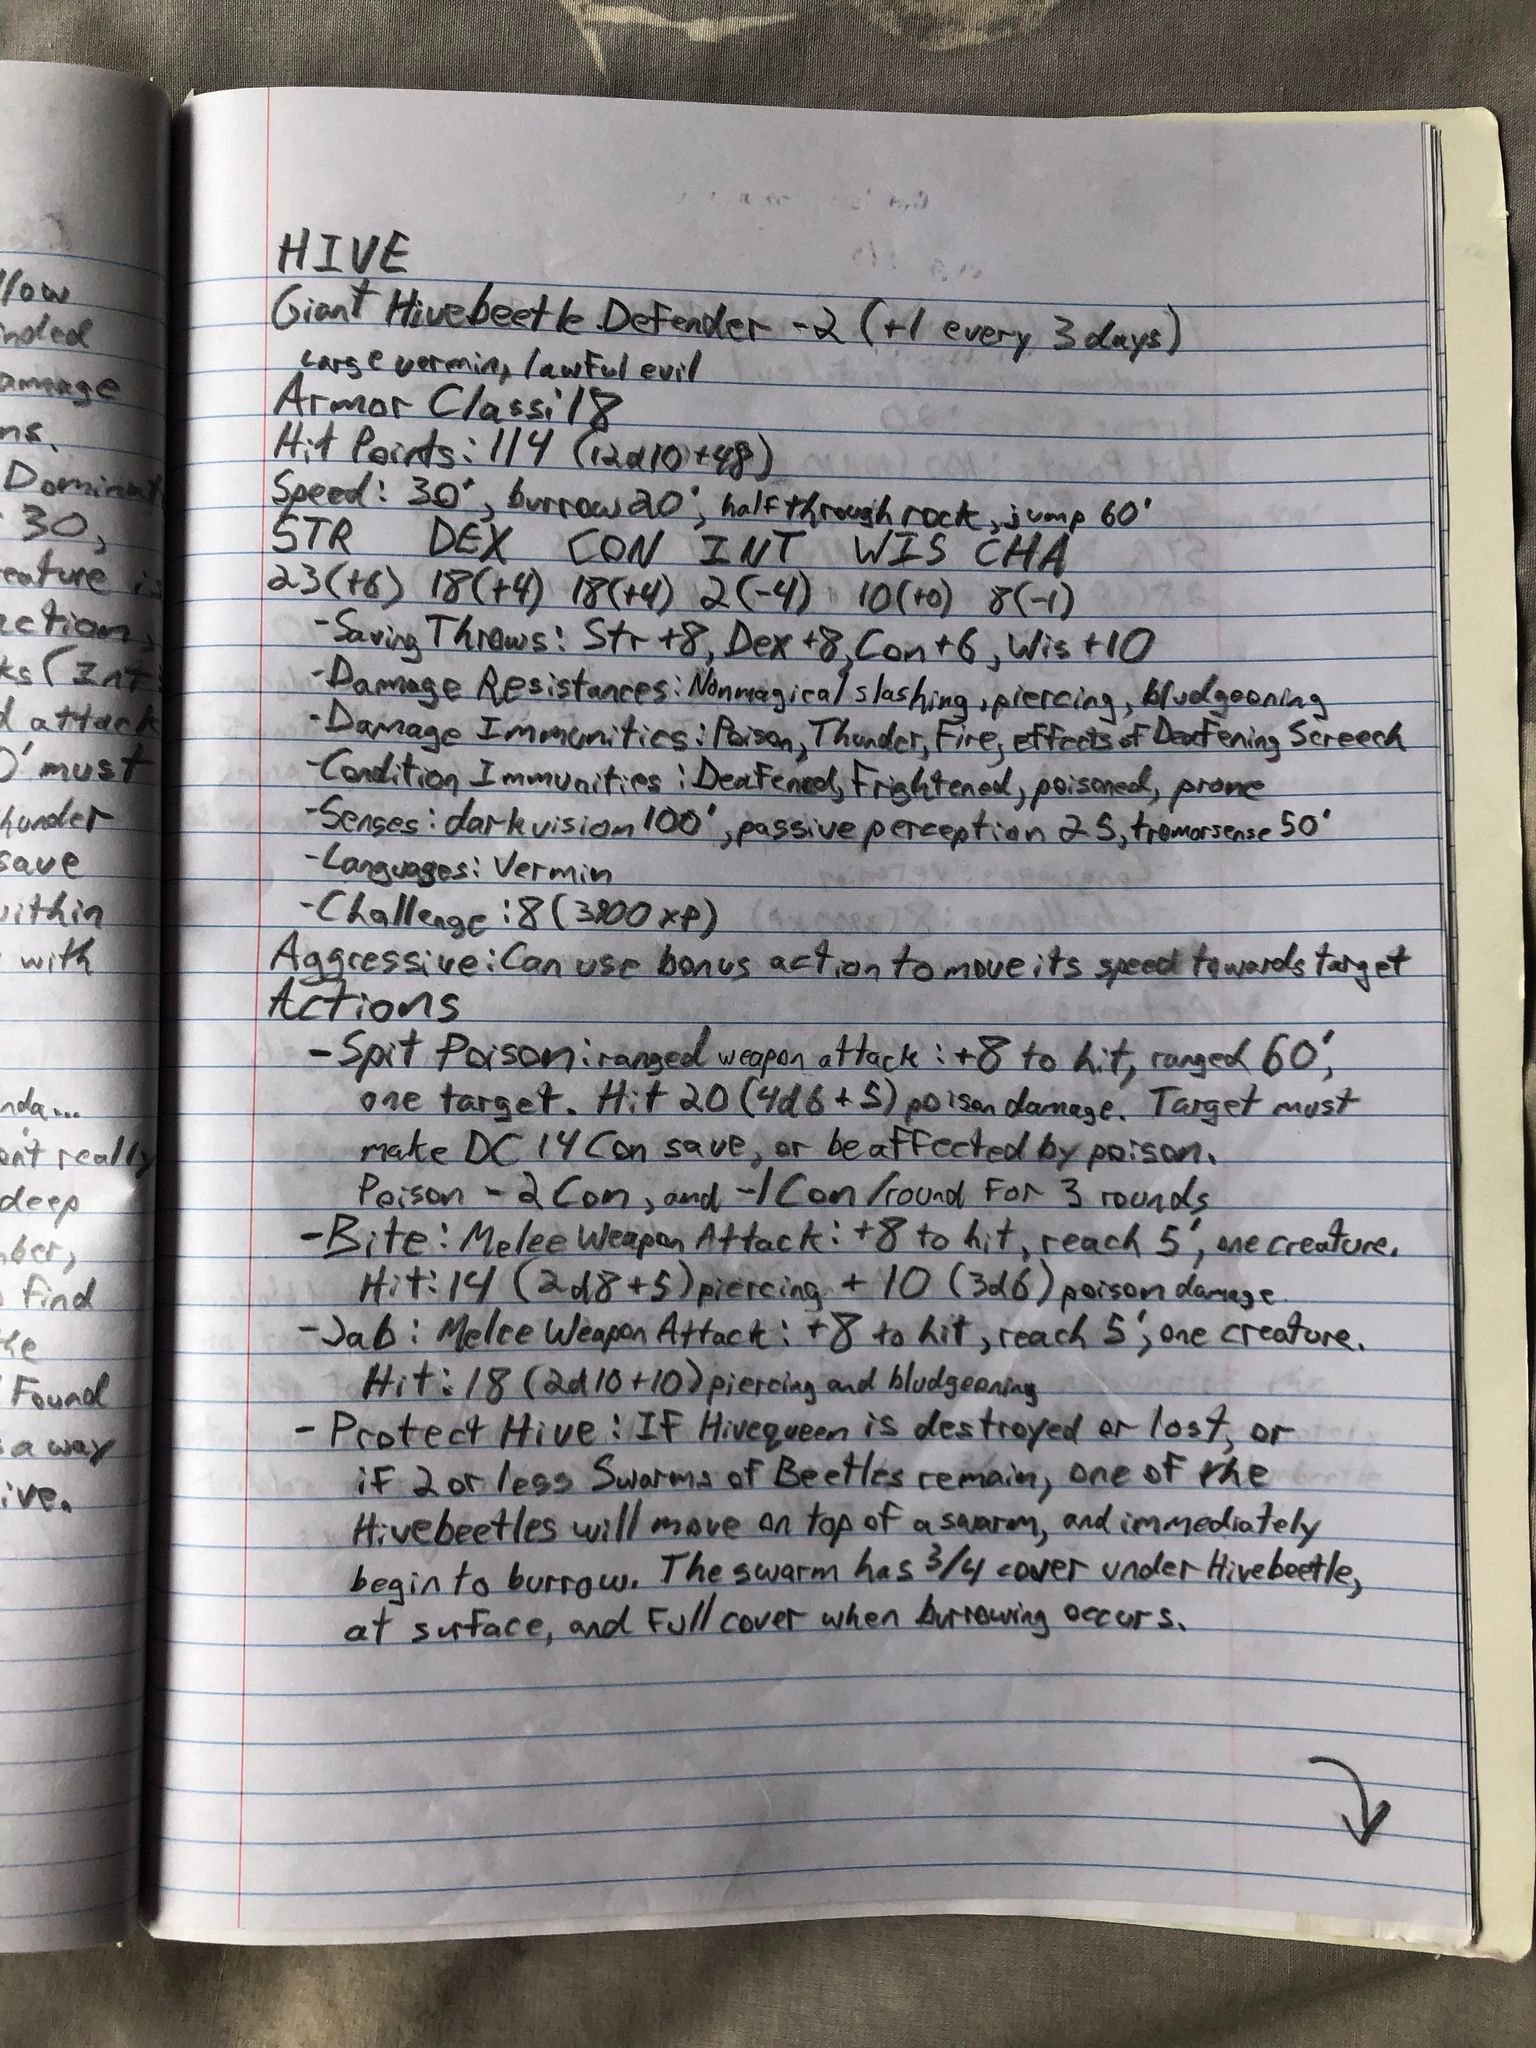 llow
inded
amage
ns.
Dominat
30,
reature is
action,
ks (Int
d attack
0' must
hunder
save
within
with
nda...
on't really
deep
mber,
find
the
Found
s a way
ive.
HIVE
Giant Hivebeetle Defender -2 (+1 every 3 days)
Large vermin, lawful evil
Armor Class: 18
Hit Points: 114 (12d10+48)
Speed: 30', burrow 20', half through rock, jump 60'
STR DEX CON INT WIS CHA
23(+6) 18(+4) 18(+4) 2(-4) 10(+0) 8(-1)
-Saving Throws: Str +8, Dex +8, Con +6, Wis +10
-Damage Resistances: Nonmagical slashing, piercing, bludgeoning
-Damage Immunities: Poison, Thunder, Fire, effects of Deafening Screech
-Condition Immunities: Deafened, Frightened, poisoned, prone
-Senses: darkvision 100', passive perception 25, tremorsense 50'
-Languages: Vermin
-Challenge: 8 (3900 xp)
Aggressive: Can use bonus action to move its speed towards target
Actions
-Spit Poison: ranged weapon attack: +8 to hit, ranged 60',
one target. Hit 20 (4d6+5) poison damage. Target must
make DC 14 Con save, or be affected by poison.
Poison -2 Con, and -1 Con/round for 3 rounds
-Bite: Melee Weapon Attack: +8 to hit, reach 5', one creature.
Hit: 14 (2d8+5) piercing + 10 (3d6) poison damage
-Jab: Melee Weapon Attack: +8 to hit, reach 5', one creature.
Hit: 18 (2d10+10) piercing and bludgeoning
- Protect Hive: If Hivequeen is destroyed or lost, or
if 2 or less Swarms of Beetles remain, one of the
Hivebeetles will move on top of a swarm, and immediately
begin to burrow. The swarm has 3/4 cover under Hivebeetle,
at surface, and full cover when burrowing occurs.